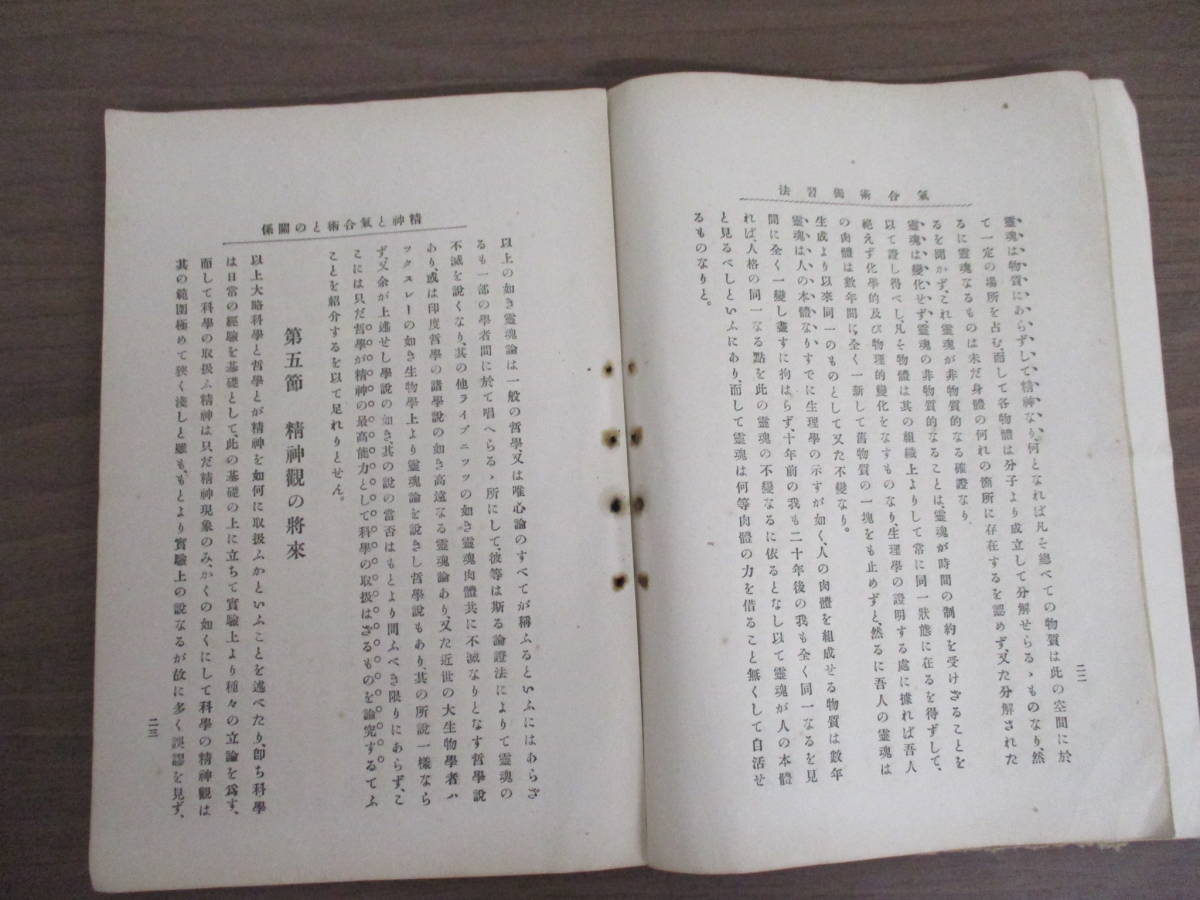 氣合術獨習法
二二
靈魂は物質にあらずして精神なり、何となれば凡そ總べての物質は此の空間に於
て一定の場所を占む、而して各物體は分子より成立して分解せらるゝものなり、然
るに靈魂なるものは未だ身體の何れの箇所に存在するを認めず、又た分解された
るを聞かず、これ靈魂が非物質的なる確證なり
靈魂は變化せず、靈魂の非物質的なることは、靈魂が時間の制約を受けざることを
以て證し得べし、凡そ物體は其の組織上よりして常に同一狀態に在るを得ずして、
絕えず化學的及び物理的變化をなすものなり、生理學の證明する處に據れば吾人
の肉體は數年間に、全く一新して舊物質の一塊をも止めずと、然るに吾人の靈魂は
生成より以來同一のものとして又た不變なり。
靈魂は人の本體なり、すでに生理學の示すが如く、人の肉體を組成せる物質は數年
間に全く一變し盡すに拘はらず、十年前の我も二十年後の我も全く同一なるを見
れば、人格の同一なる點を此の靈魂の不變なるに依るとなし以て靈魂が人の本體
と見るべしといふにあり、而して靈魂は何等肉體の力を借ること無くして自活せ
るものなりと。
精神と氣合術との關係
以上の如き靈魂論は一般の哲學、又は唯心論のすべてが稱ふるといふにはあらざ
るも一部の學者間に於て唱へらるゝ所にして、彼等は斯る論證法によりて靈魂の
不滅を說くなり、其の他ライプニッツの如き靈魂肉體共に不滅なりとなす哲學說
あり、或は印度哲學の諸學說の如き高遠なる靈魂論あり、又た近世の大生物學者ハ
ックスレーの如き生物學上より靈魂論を說きし哲學說もあり、其の所說一樣なら
ず、又余が上述せし學說の如き、其の說の當否はもとより問ふべき限りにあらず、こ
こには只だ哲學が精神の最高能力として科學の取扱はざるものを論究するてふ
ことを紹介するを以て足れりとせん。
第五節　精神觀の將來
以上大略科學と哲學とが精神を如何に取扱ふかといふことを述べたり、卽ち科學
は日常の經驗を基礎として此の基礎の上に立ちて實驗上より種々の立論を爲す、
而して科學の取扱ふ精神は只だ精神現象のみ、かくの如くにして科學の精神觀は
其の範圍極めて狹く淺しと雖も、もとより實驗上の說なるが故に多く誤謬を見ず、
二三